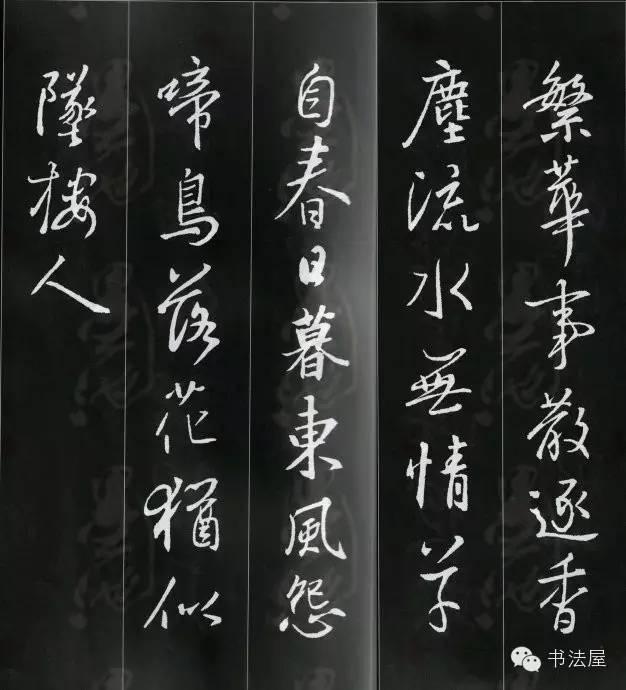 繁華事散逐香
塵流水無情草
自春日暮東風怨
啼鳥落花猶似
墜樓人
书法屋